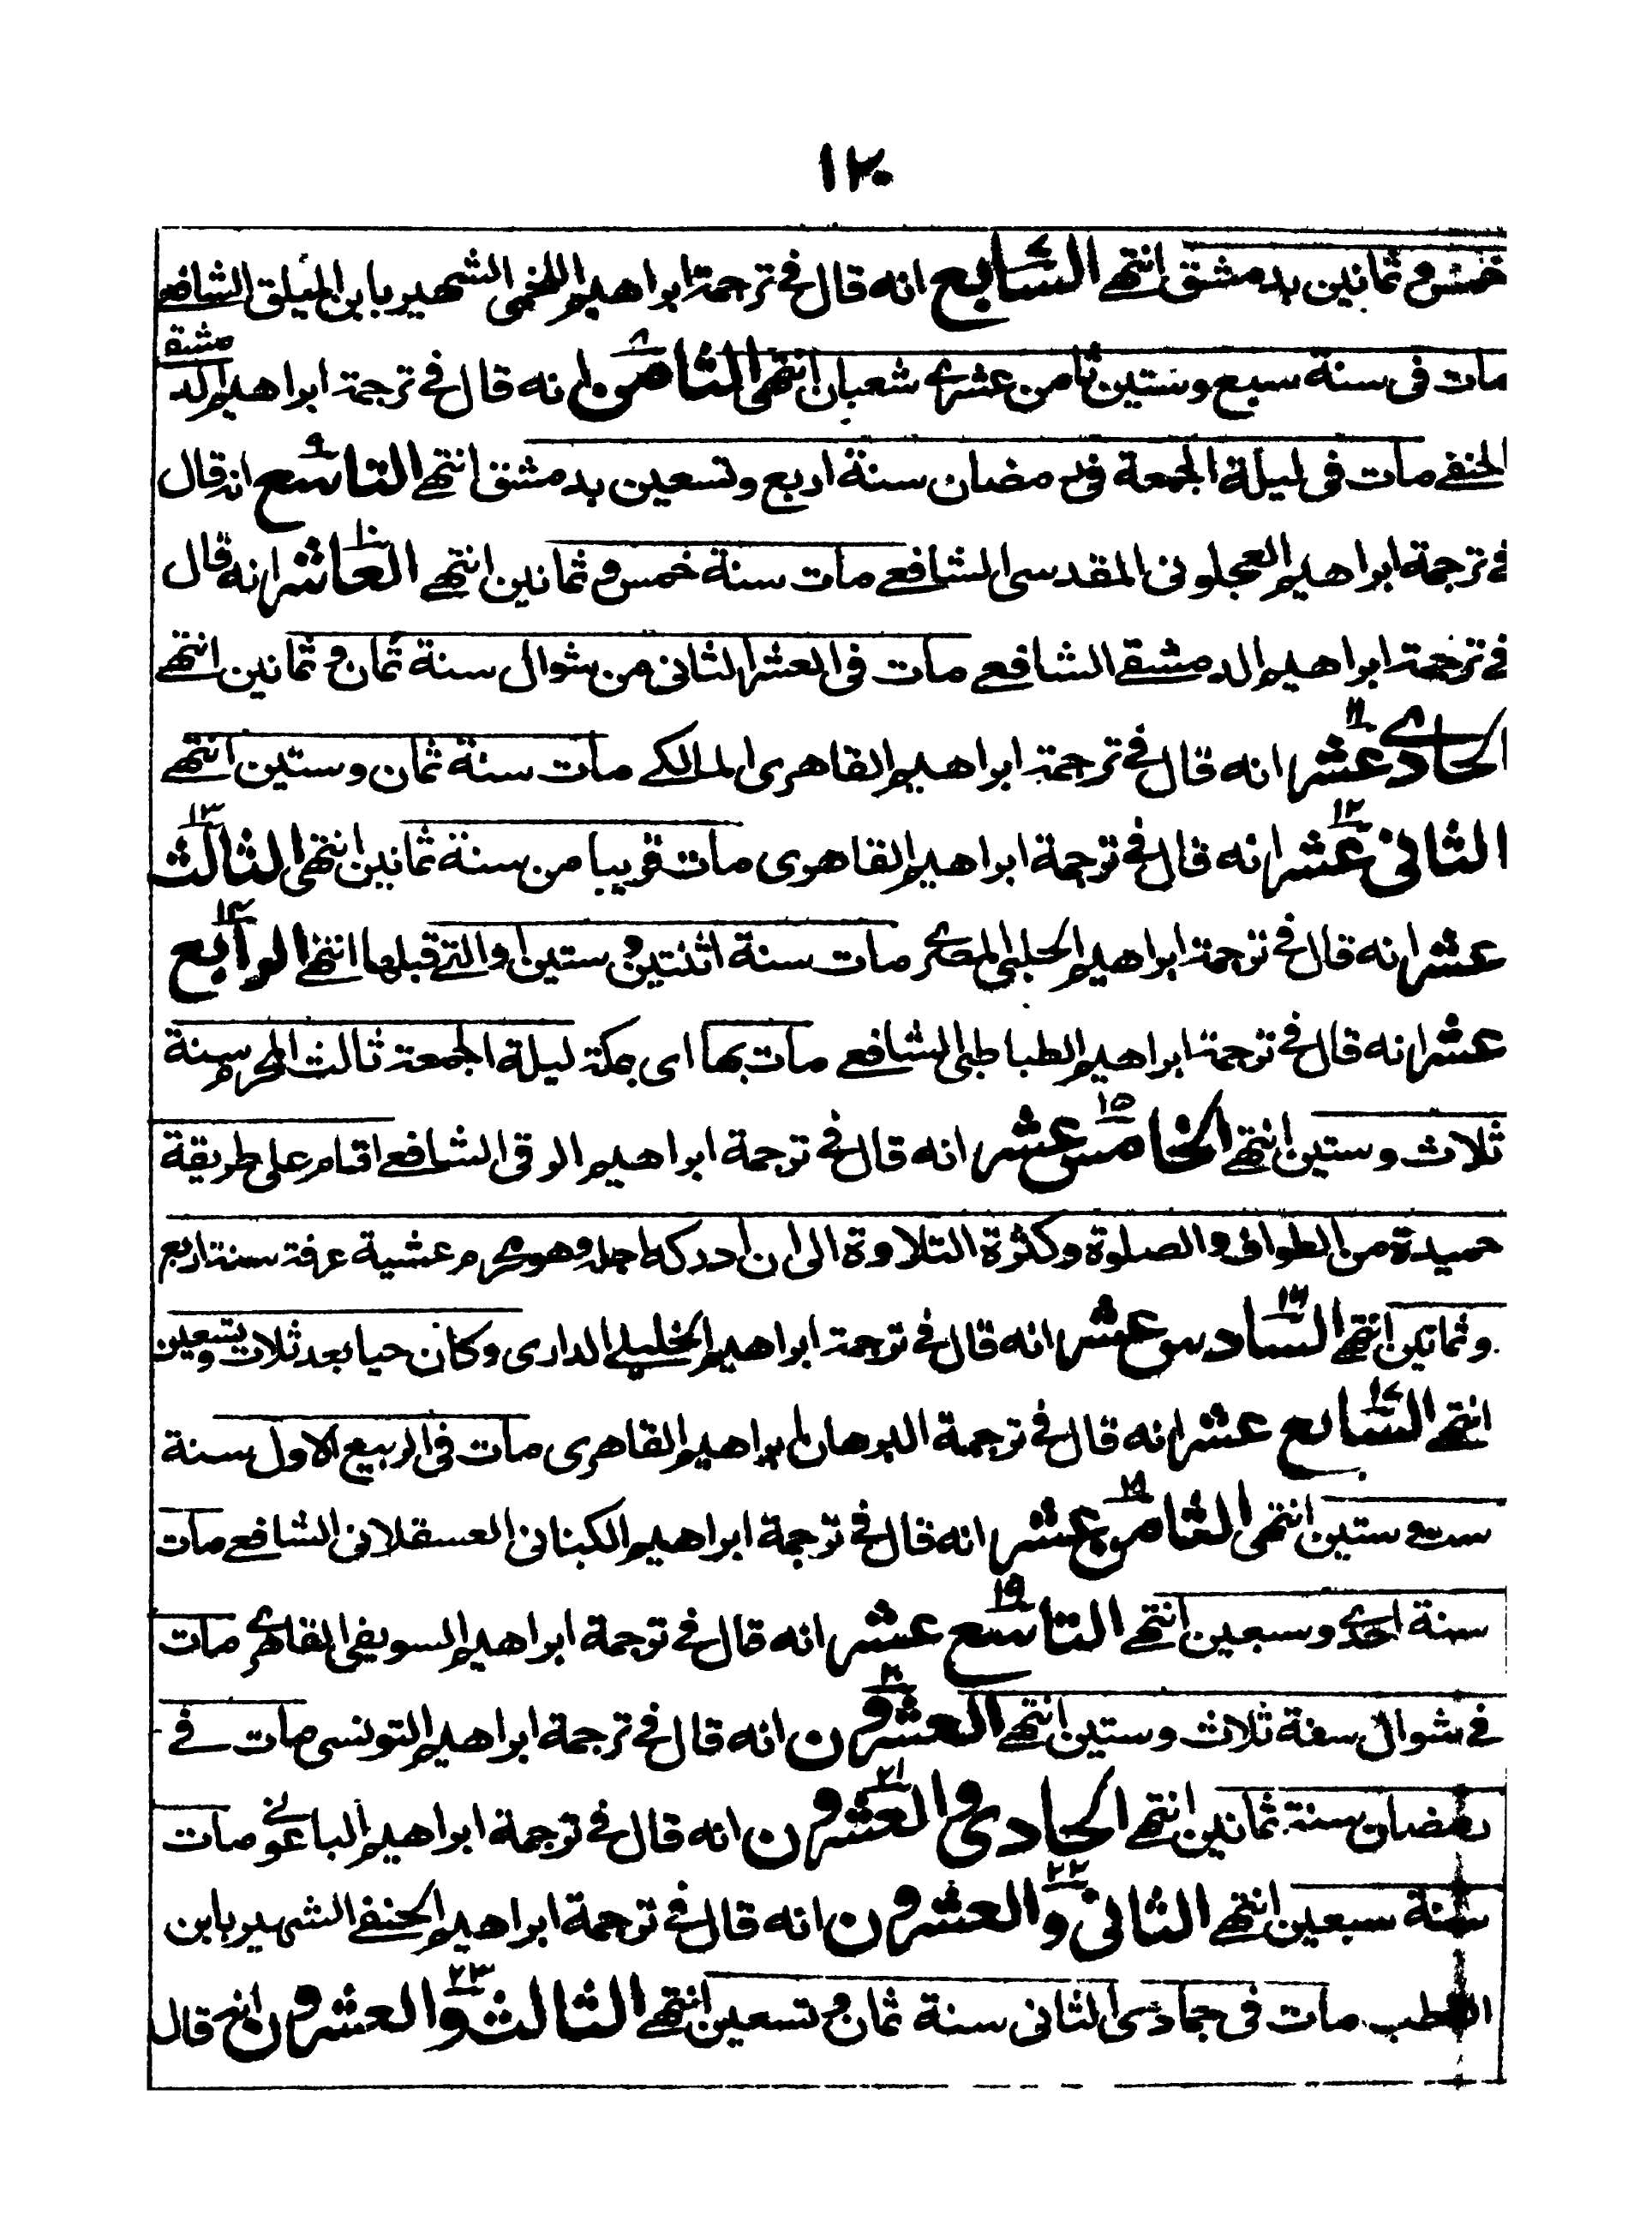 ١٢٠
خمس وثمانين بدمشق انتهى السابع ٧ انه قال فى ترجمة ابراهيم اللخمى الشهير بابن الميلق الشافعى
مات فى سنة سبع وستين ثامن عشرى شعبان انتهى الثامن ٨ انه قال فى ترجمة ابراهيم الدمشقى
الحنفى مات فى ليلة الجمعة فى رمضان سنة اربع وتسعين بدمشق انتهى التاسع ٩ انه قال
فى ترجمة ابراهيم العجلونى المقدسى الشافعى مات سنة خمس وثمانين انتهى العاشر ١٠ انه قال
فى ترجمة ابراهيم الدمشقى الشافعى مات فى العشر الثانى من شوال سنة ثمان وثمانين انتهى
الحادى عشر ١١ انه قال فى ترجمة ابراهيم القاهرى المالكى مات سنة ثمان وستين انتهى
الثانى عشر ١٢ انه قال فى ترجمة ابراهيم القاهرى مات قريبا من سنة ثمانين انتهى الثالث ١٣
عشر انه قال فى ترجمة ابراهيم الحلبى المصرى مات سنة اثنتين وستين او التى قبلها انتهى الرابع ١٤
عشر انه قال فى ترجمة ابراهيم الطباطبى الشافعى مات بها اى بمكة ليلة الجمعة ثالث المحرم سنة
ثلاث وستين انتهى الخامس عشر ١٥ انه قال فى ترجمة ابراهيم الرقى الشافعى اقام على طريقة
حميدة من الطواف والصلوة وكثرة التلاوة الى ان ادركه اجله وهو محرم عشية عرفة سنة اربع
وثمانين انتهى السادس عشر ١٦ انه قال فى ترجمة ابراهيم الخليلى الدارى وكان حيا بعد ثلاث وتسعين
انتهى السابع عشر ١٧ انه قال فى ترجمة البرهان ابراهيم القاهرى مات فى الربيع الاول سنة
ستين انتهى الثامن عشر ١٨ انه قال فى ترجمة ابراهيم الكنانى العسقلانى الشافعى مات
سنة احدى وسبعين انتهى التاسع عشر ١٩ انه قال فى ترجمة ابراهيم السويفى القاهرى مات
فى شوال سنة ثلاث وستين انتهى العشرون ٢٠ انه قال فى ترجمة ابراهيم التونسى مات فى
رمضان سنة ثمانين انتهى الحادى والعشرون ٢١ انه قال فى ترجمة ابراهيم الباعونى مات
سنة سبعين انتهى الثانى والعشرون ٢٢ انه قال فى ترجمة ابراهيم الحنفى الشهير بابن
القطب مات فى جمادى الثانى سنة ثمان وتسعين انتهى الثالث والعشرون ٢٣ انه قال